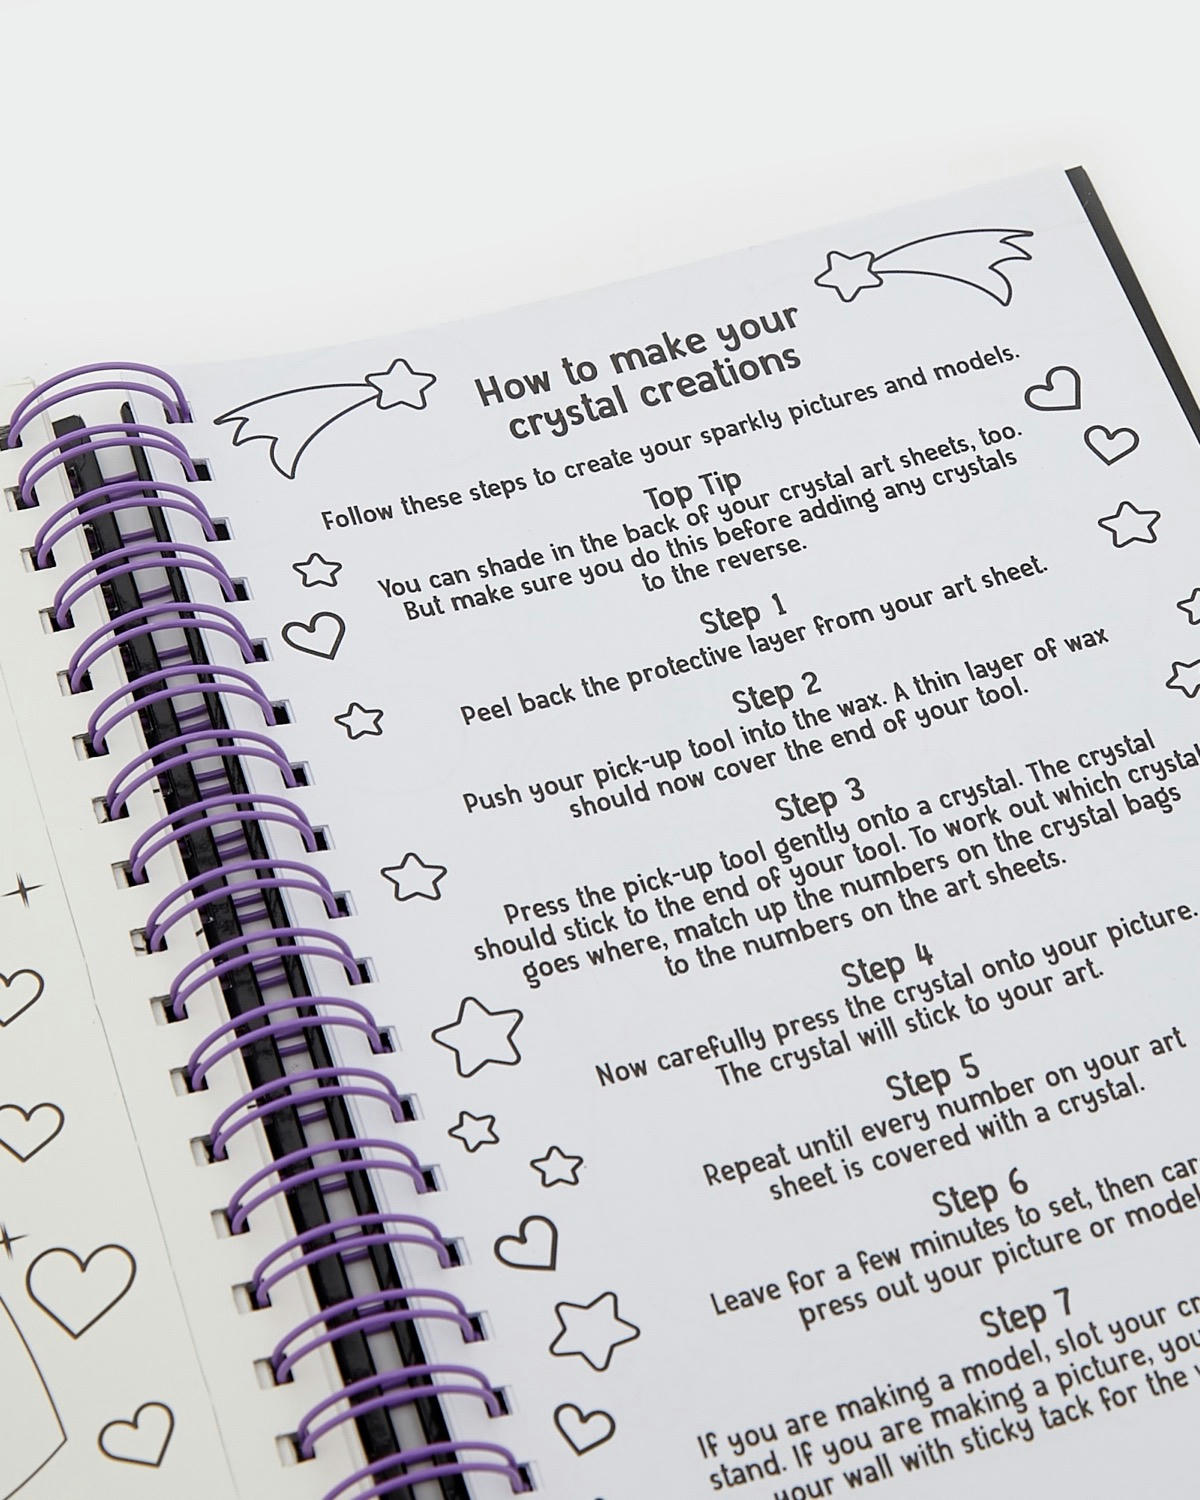 How to make your
crystal creations
Follow these steps to create your sparkly pictures and models.
Top Tip
You can shade in the back of your crystal art sheets, too.
But make sure you do this before adding any crystals
to the reverse.
Step 1
Peel back the protective layer from your art sheet.
Step 2
Push your pick-up tool into the wax. A thin layer of wax
should now cover the end of your tool.
Step 3
Press the pick-up tool gently onto a crystal. The crystal
should stick to the end of your tool. To work out which crystal
goes where, match up the numbers on the crystal bags
to the numbers on the art sheets.
Step 4
Now carefully press the crystal onto your picture.
The crystal will stick to your art.
Step 5
Repeat until every number on your art
sheet is covered with a crystal.
Step 6
Leave for a few minutes to set, then
press out your picture or model
Step 7
If you are making a model, slot your
stand. If you are making a picture,
your wall with sticky tack for the